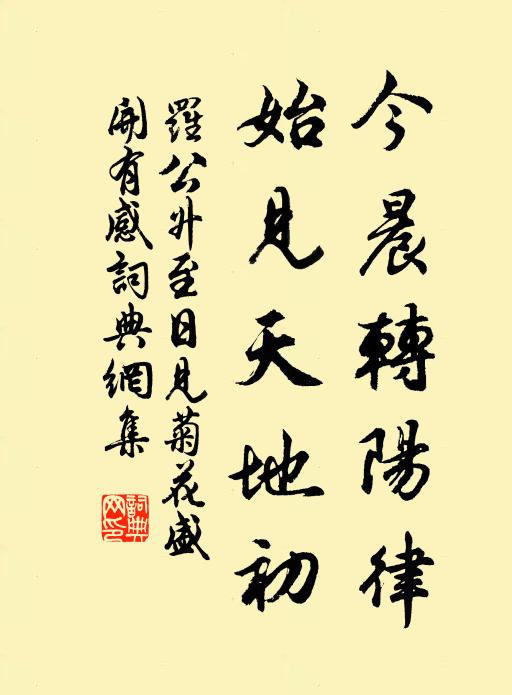 今晨轉陽律
始見天地初
羅公升至日見菊花盛
開有感詞典網集
詞典
网印